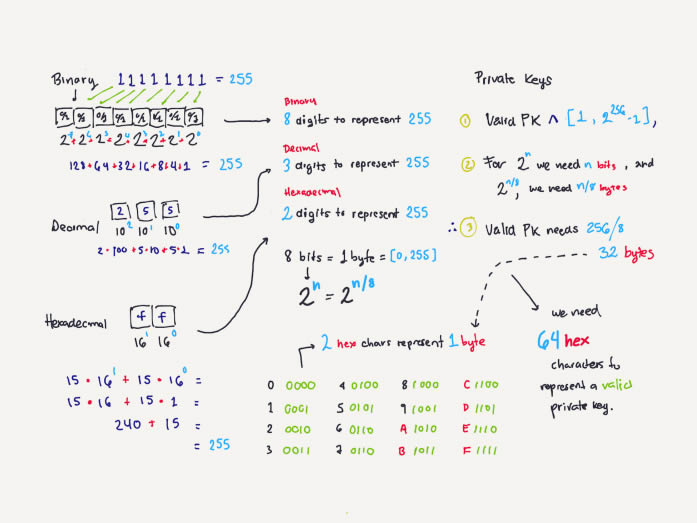 Binary 11111111 = 255
0/1 0/1 0/1 0/1 0/1 0/1 0/1 0/1
2^7+2^6+2^5+2^4+2^3+2^2+2^1+2^0
128+64+32+16+8+4+2+1 = 255
Decimal
2 5 5
10^2 10^1 10^0
2·100+5·10+5·1 = 255
Hexadecimal
f f
16^1 16^0
15 · 16^1 + 15 · 16^0 =
15 · 16 + 15 · 1 =
240 + 15 =
= 255
Binary
8 digits to represent 255
Decimal
3 digits to represent 255
Hexadecimal
2 digits to represent 255
8 bits = 1 byte = [0, 255]
2^n = 2^n/8
2 hex chars represent 1 byte
0 0000 4 0100 8 1000 C 1100
1 0001 5 0101 9 1001 D 1101
2 0010 6 0110 A 1010 E 1110
3 0011 7 0110 B 1011 F 1111
Private Keys
1 Valid PK ∧ [1, 2^256-1],
2 For 2^n we need n bits, and
2^n/8, we need n/8 bytes
∴ 3 Valid PK needs 256/8
32 bytes
we need
64 hex
characters to
represent a valid
private key.